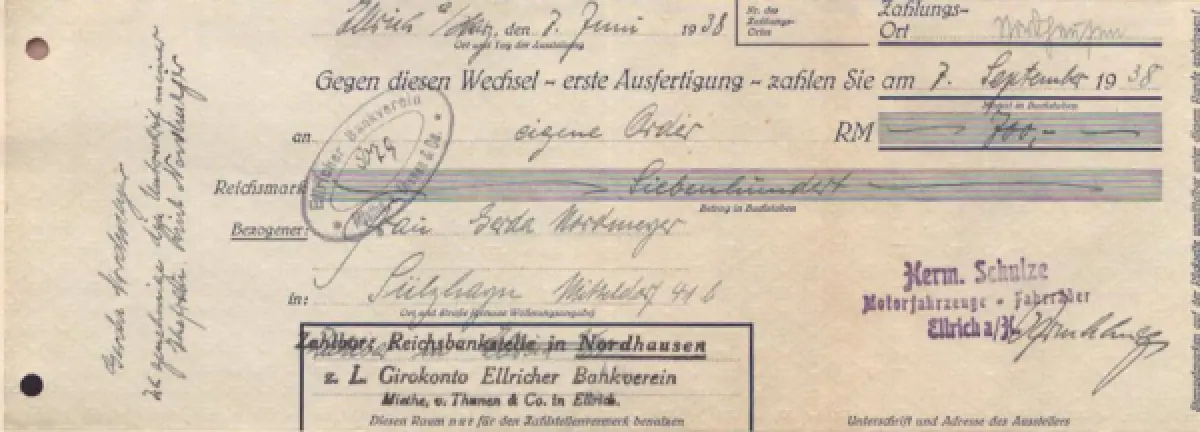 Ellrich a/Harz, den 7. Juni 1938
Ort und Tag der Ausstellung
Nr. des
Zahlungs-
Ortes
Zahlungs-
Ort Nordhausen
Gegen diesen Wechsel - erste Ausfertigung - zahlen Sie am 7. September 1938
Monat in Buchstaben
an eigene Order RM 700,-
Reichsmark Siebenhundert
Betrag in Buchstaben
Bezogener: Frau Gerda Nordmeyer
in: Sülzhayn Mitteldorf 41 b
Ort und Straße (genaue Wohnungsangabe)
Ellricher Bankverein
& Co.
Herm. Schulze
Motorfahrzeuge • Fahrräder
Ellrich a/H.
Zahlbar: Reichsbankstelle in Nordhausen
z. L. Girokonto Ellricher Bankverein
Miethe, v. Thenen & Co. in Ellrich.
Diesen Raum nur für den Zahlstellenvermerk benutzen
Unterschrift und Adresse des Ausstellers
Gerda Nordmeyer
Ich genehmige die Unterschrift meiner
Ehefrau